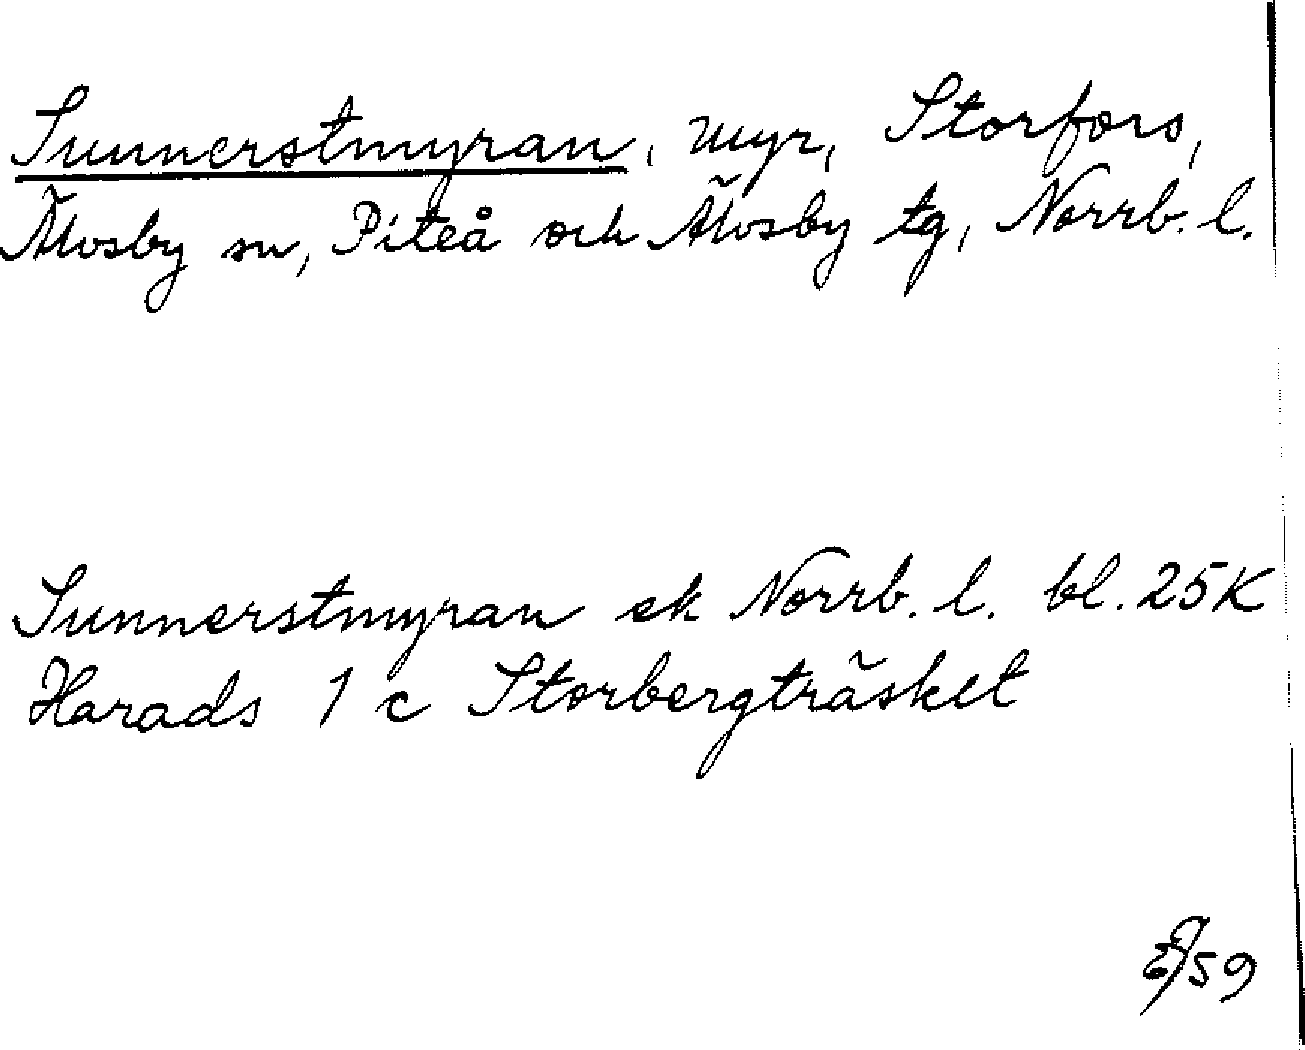 Sunnerstmyran, myr, Storfors,
Älvsby sn, Piteå och Älvsby tg, Norrb. l.
Sunnerstmyran ek Norrb. l. bl. 25K
Harads 1 c Storbergträsket
59